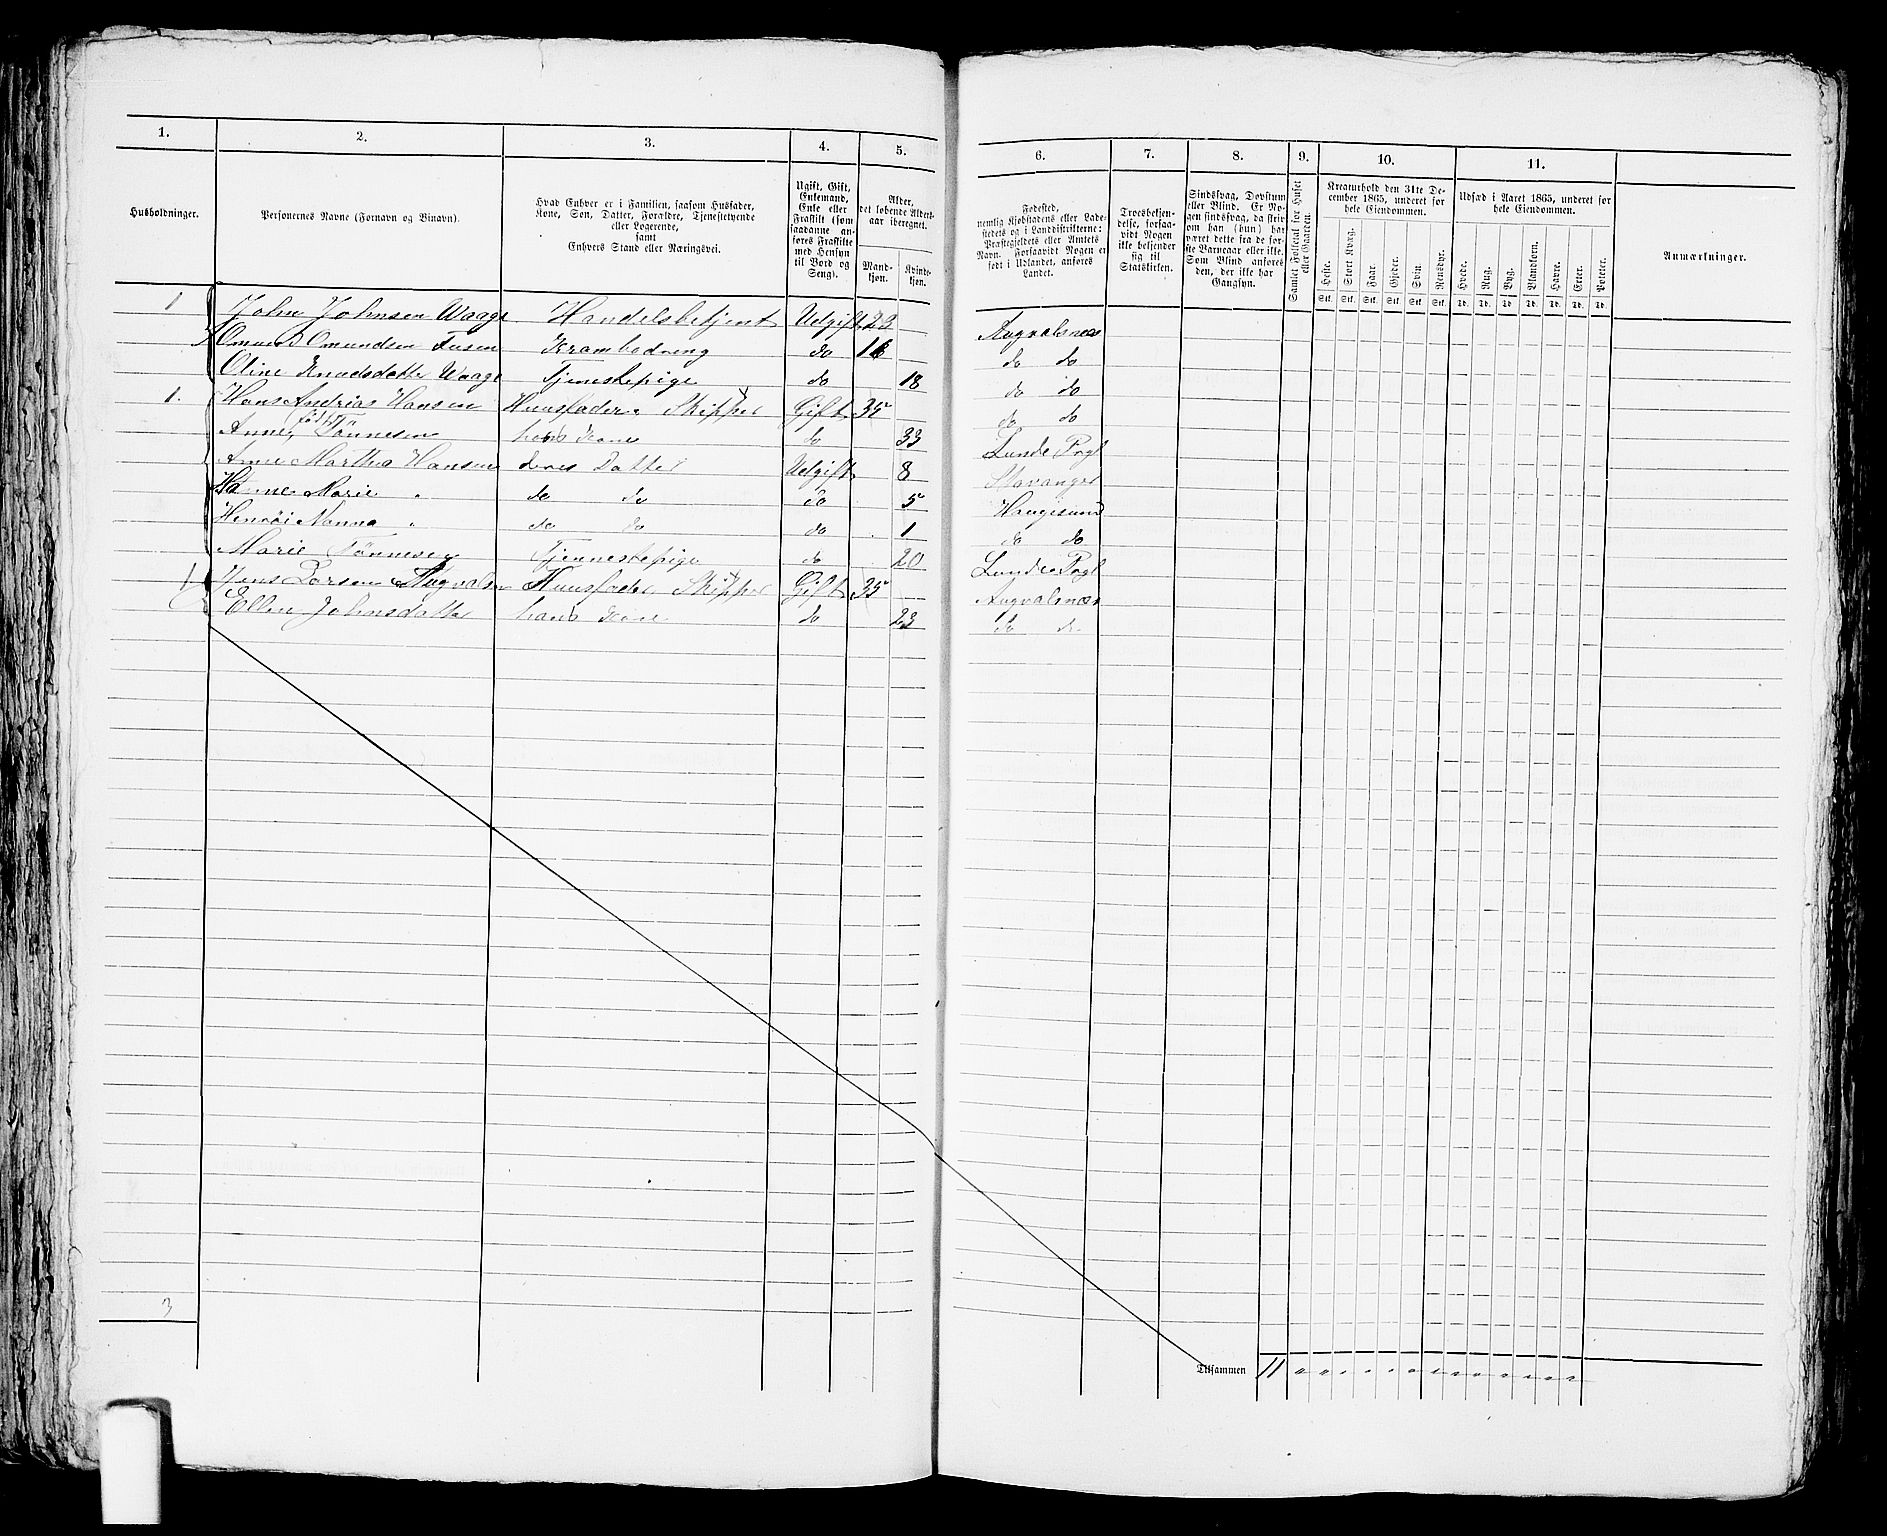 1. 2. 3. 4. 5. 6. 7. 8. 9. 10. 11.
Husholdninger.
Personernes Navne (Fornavn og Binavn).
Hvad Enhver er i Familien, saasom Husfader,
Kone, Søn, Datter, Forældre, Tjenestetyende
eller Logerende,
samt
Enhvers Stand eller Næringsvei.
Ugift, Gift,
Enkemand,
Enke eller
Fraskilt (som
saadanne an-
føres Fraskilte
med Hensyn
til Bord og
Seng).
Alder,
det løbende Alders-
aar iberegnet.
Mand-
kjøn.
Kvinde-
kjøn.
Fødested,
nemlig Kjøbstadens eller Lade-
stedets og i Landdistrikterne:
Præstegjeldets eller Amtets
Navn. Forsaavidt Nogen er
født i Udlandet, anføres
Landet.
Troesbekjen-
delse, forsaa-
vidt Nogen
ikke bekjender
sig til
Statskirken.
Sindssvag, Døvstum
eller Blind. Er No-
gen sindssvag, da skriv
om han (hun) har
været dette fra de før-
ste Barneaar eller ikke.
Som Blind anføres
den, der ikke har
Gangsyn.
Samlet Folketal for Huset
eller Gaarden.
Kreaturhold den 31te De-
cember 1865, underet for
hele Eiendommen.
Heste. Stort Kvæg. Faar. Gjeder. Svin. Rensdyr.
Stk. Stk. Stk. Stk. Stk. Stk.
Udsæd i Aaret 1865, underet for
hele Eiendommen.
Hvede. Rug. Byg. Blandkorn. Havre. Erter. Poteter.
Td. Td. Td. Td. Td. Td. Td.
Anmærkninger.
1 John Johnsen Waage Handelsbetjent Udgift 23 Augvalsnæs
Omund Omundsen Tusen Krambodreng do 16 do do
Oline Knudsdatter Waage Tjenestepige do 18 do do
1. Hans Andrias Hansen Huusfader, Skipper Gift 35 do do
Anne, født Tønnesen hans Kone do 33 Lunde Pgl
Anne Martha Hansen deres Datter Udgift 8 Stavanger
Hanne Marie " do do do 5 Haugesund
Nanna " do do do 1 do do
Marie Tønnesen Tjennestepige do 20 Lunde Pgl
1 Jens Larsen Augvalsn Huusfader Skipper Gift 35 Augvalsnæs
Ellen Johnsdatter hans Kone do 23 do do
3
Tilsammen 11